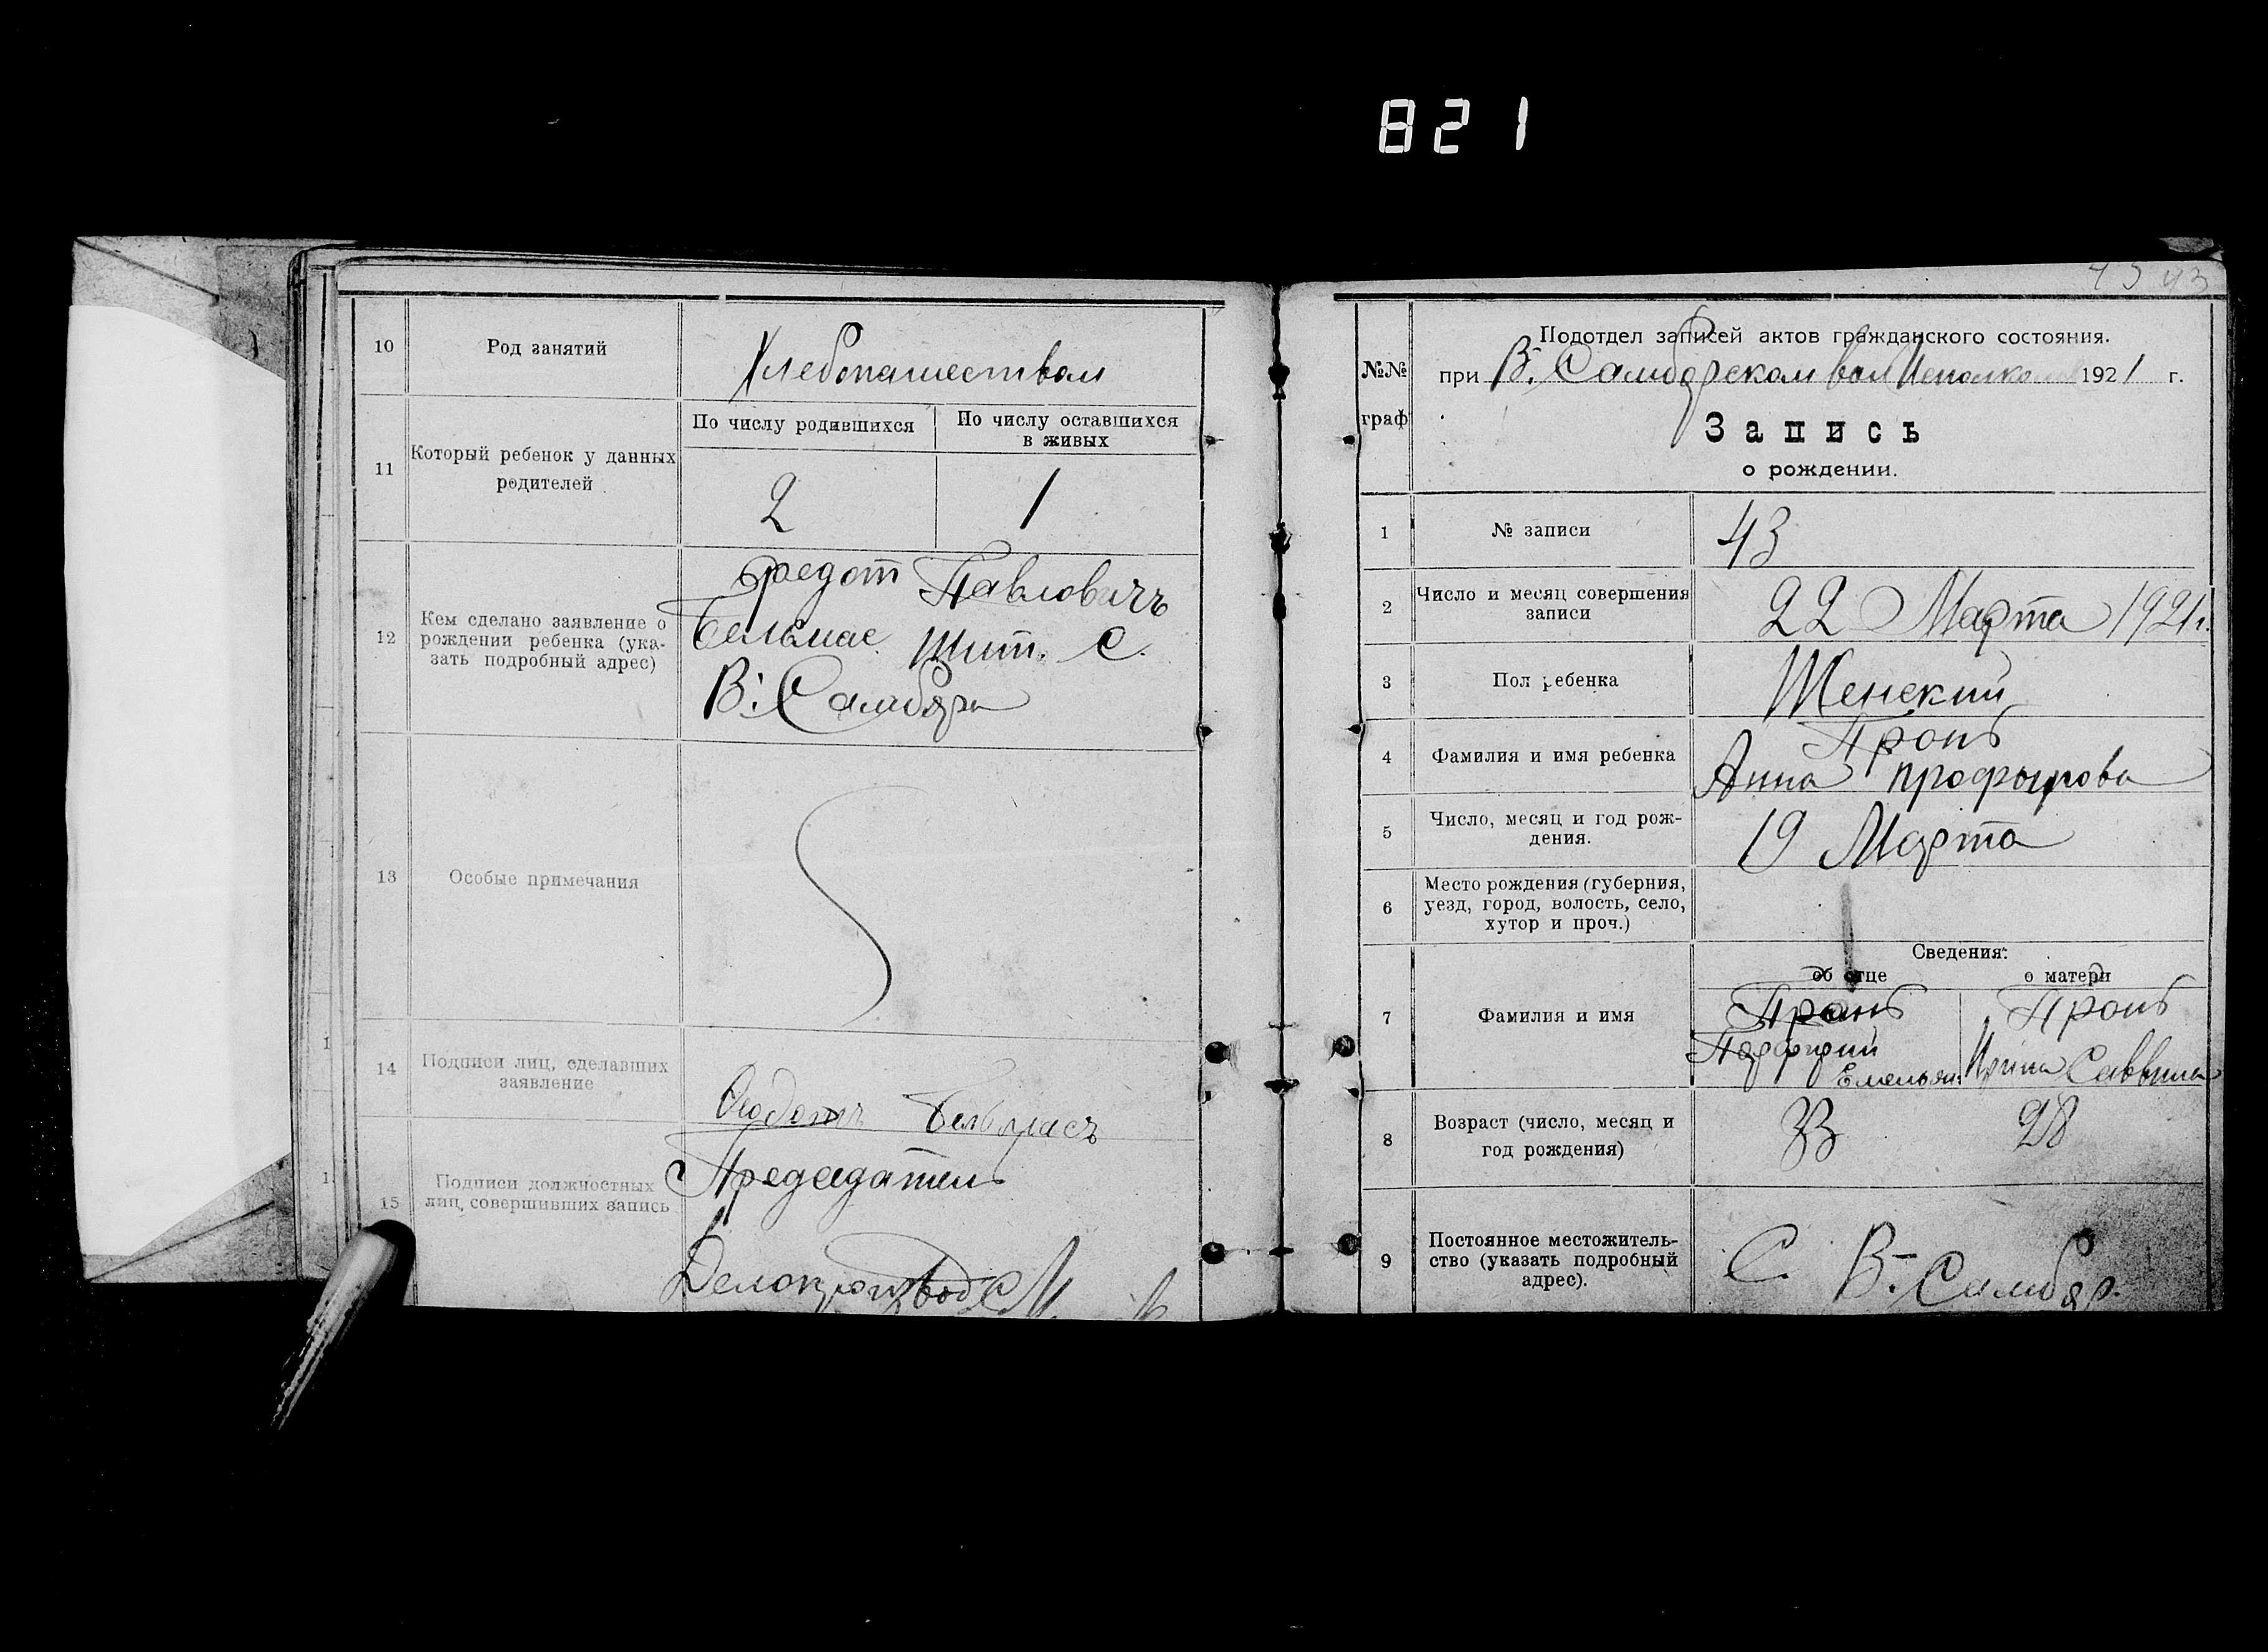 821
10
Род занятий
Хлебопашеством
11
Который ребенок у данных
родителей
По числу родившихся
По числу оставшихся
в живых
2
1
12
Кем сделано заявление о
рождении ребенка (ука-
зать подробный адрес)
Федот Павловичъ
Бельмас жит. С.
В. Самбяри
13
Особые примечания
14
Подписи лиц, сделавших
заявление
Бельмасъ
15
Подписи должностных
лиц, совершивших запись
Председатель
Делопроизвод
43
№№
граф
Подотдел записей актов гражданского состояния.
при В. Самборском вол Исполком 1921 г.
Запись
о рождении.
1
№ записи
43
2
Число и месяц совершения
записи
22 Марта 1921 г.
3
Пол ребенка
Женский
4
Фамилия и имя ребенка
Пронь
Анна профирова
5
Число, месяц и год рож-
дения.
19 Марта
6
Место рождения (губерния,
уезд, город, волость, село,
хутор и проч.)
Сведения:
об отце
о матери
7
Фамилия и имя
Пронь
Порфирий
Емельян.
Пронь
Ирина Саввина
8
Возраст (число, месяц и
год рождения)
33
28
9
Постоянное местожитель-
ство (указать подробный
адрес).
С. В. Самбяр.